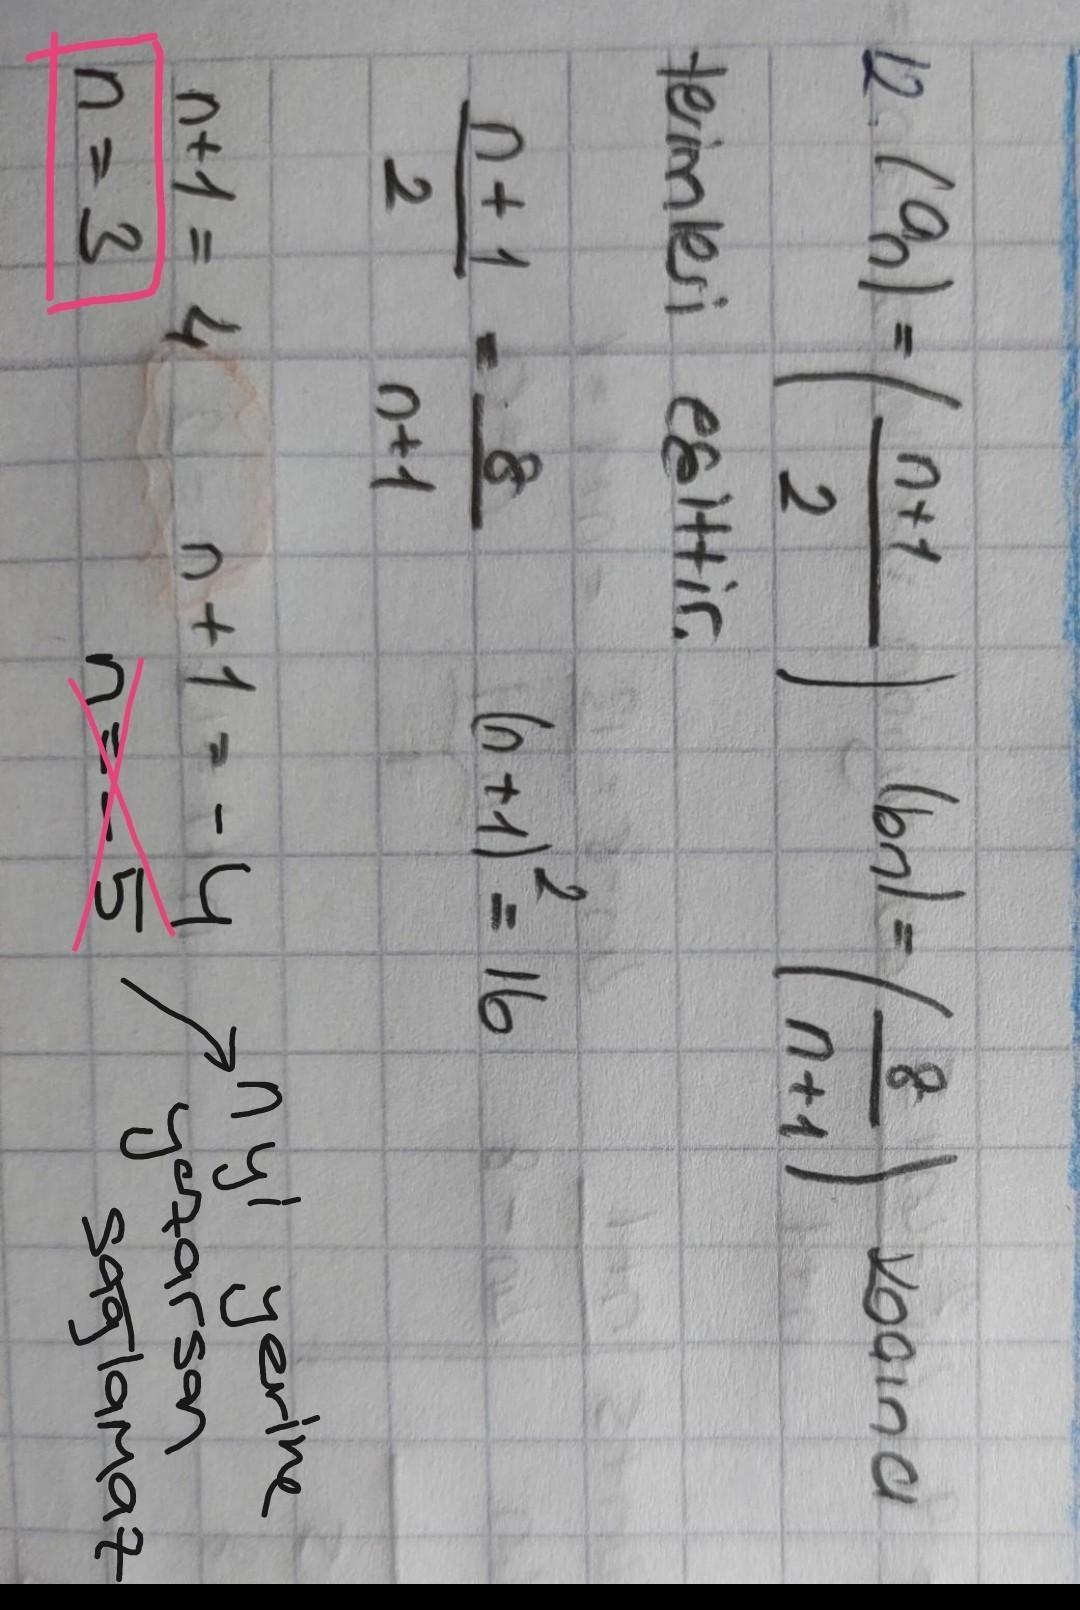 12. (an) = (n+1/2) (bn) = (8/n+1) kaçıncı
terimleri eşittir.
n+1/2 = 8/n+1 (n+1)² = 16
n+1 = 4 n+1 = -4
n = 3 n = -5
n yi yerine
yazarsan
sağlamaz